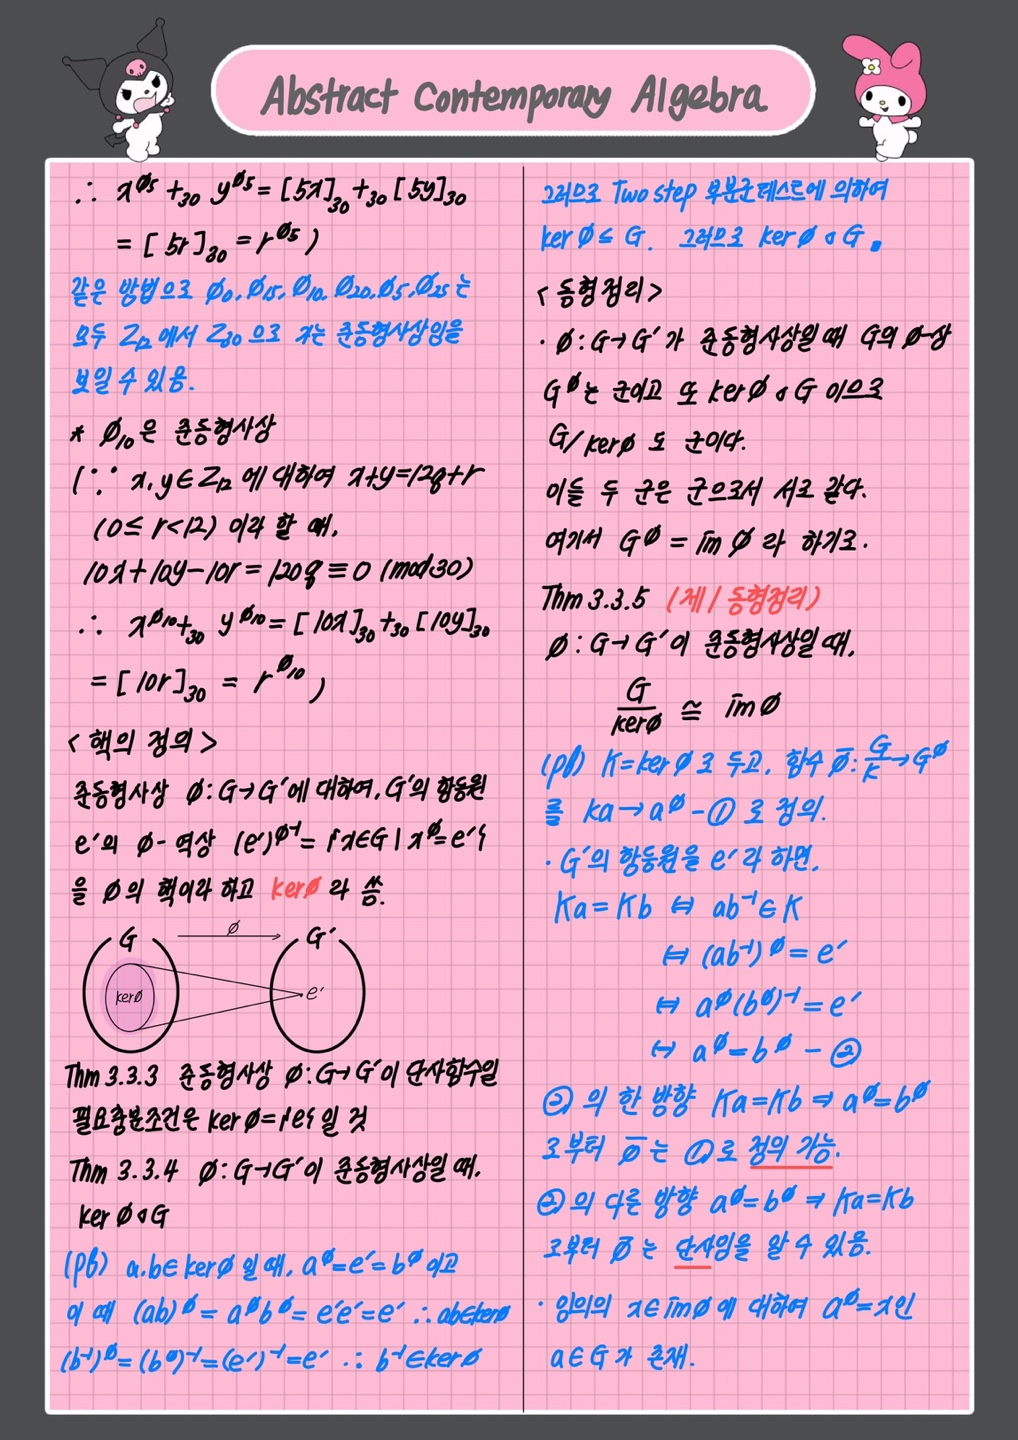 Abstract Contemporary Algebra
∴ x^ø₅ +₃₀ y^ø₅ = [5x]₃₀ +₃₀ [5y]₃₀
= [5r]₃₀ = r^ø₅ )
같은 방법으로 ø₀, ø₁₅, ø₁₀, ø₂₀, ø₅, ø₂₅는
모두 Z₁₂에서 Z₃₀으로 가는 준동형사상임을
보일 수 있음.
* ø₁₀은 준동형사상
(∵ x, y ∈ Z₁₂에 대하여 x+y=12q+r
(0≤ r<12) 이라 할 때,
10x+10y-10r = 120q ≡ 0 (mod 30)
∴ x^ø₁₀ +₃₀ y^ø₁₀ = [10x]₃₀ +₃₀ [10y]₃₀
= [10r]₃₀ = r^ø₁₀ )
<핵의 정의>
준동형사상 ø:G→G′에 대하여, G′의 항등원
e′의 ø-역상 (e′)^ø⁻¹ = {x∈G | x^ø=e′}
을 ø의 핵이라 하고 kerø라 씀.
G ø G′
kerø e′
Thm 3.3.3 준동형사상 ø:G→G′이 단사함수일
필요충분조건은 kerø={e}일 것
Thm 3.3.4 ø:G→G′이 준동형사상일 때,
kerø◁G
(pf) a,b∈kerø일 때, a^ø=e′=b^ø이고
이 때 (ab)^ø = a^ø b^ø = e′e′=e′ ∴ ab∈kerø
(b⁻¹)^ø=(b^ø)⁻¹=(e′)⁻¹=e′ ∴ b⁻¹∈kerø
그러므로 Two step 부분군테스트에 의하여
kerø≤G. 그러므로 kerø◁G ▪
<동형정리>
· ø:G→G′가 준동형사상일 때 G의 ø-상
G^ø는 군이고 또 kerø◁G 이므로
G/kerø도 군이다.
이들 두 군은 군으로서 서로 같다.
여기서 G^ø = im ø라 하기로.
Thm 3.3.5 (제1동형정리)
ø:G→G′이 준동형사상일 때,
G/kerø ≅ imø
(pf) K=kerø로 두고, 함수 ø̅: G/K→G^ø
를 Ka→a^ø -① 로 정의.
· G′의 항등원을 e′라 하면,
Ka=Kb ⇔ ab⁻¹∈K
⇔ (ab⁻¹)^ø = e′
⇔ a^ø(b^ø)⁻¹ = e′
⇔ a^ø=b^ø - ②
②의 한 방향 Ka=Kb ⇒ a^ø=b^ø
로부터 ø̅는 ①로 정의 가능.
②의 다른 방향 a^ø=b^ø ⇒ Ka=Kb
로부터 ø̅는 단사임을 알 수 있음.
· 임의의 x∈imø에 대하여 a^ø=x인
a∈G가 존재.